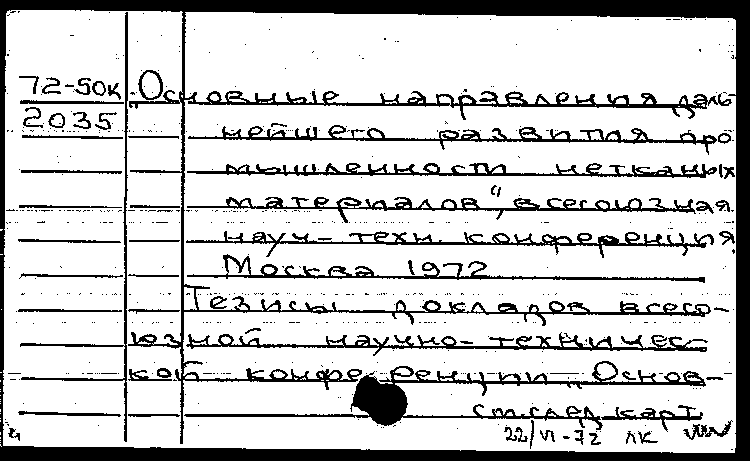 72-50к „Основные направления даль-
2035 нейшего развития про
мышленности нетканых
материалов", всесоюзная
науч.-техн. конференция,
Москва 1972
Тезисы докладов всесо-
юзной научно-техничес-
кой конференции „Основ-
см.след.карт.
22/VI-72 ЛК